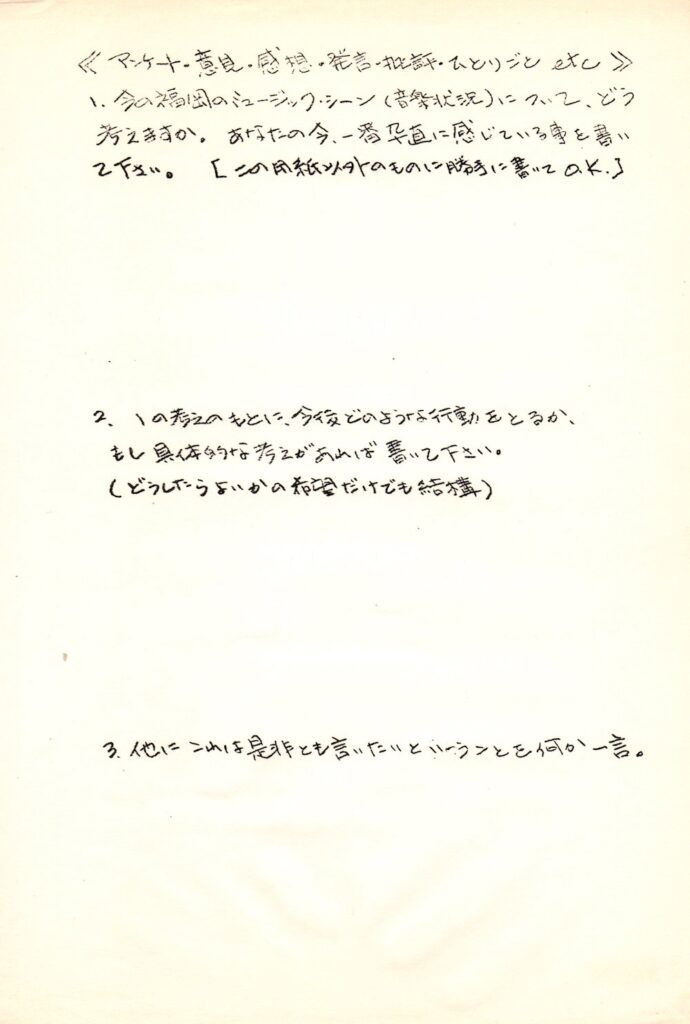 ≪ アンケート・意見・感想・発言・批評・ひとりごと etc ≫
1. 今の福岡のミュージック・シーン(音楽状況)について、どう
考えますか。 あなたの今、一番卒直に感じている事を書い
て下さい。 [この用紙以外のものに勝手に書いて O.K.]
2. 1の考えのもとに、今後どのような行動をとるか、
もし具体的な考えがあれば書いて下さい。
(どうしたらよいかの希望だけでも結構)
3. 他にこれは是非とも言いたいということを何か一言。